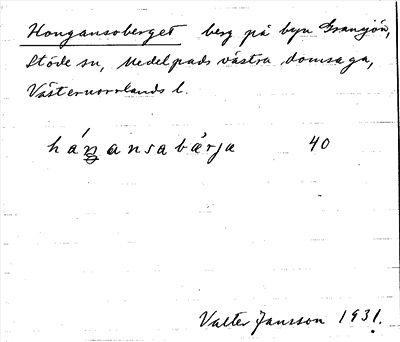 Hongansoberget berg på byn Gransjön,
Stöde sn, Medelpads västra domsaga,
Västernorrlands l.
háŋansabǽrja 40
Valter Jansson 1931.